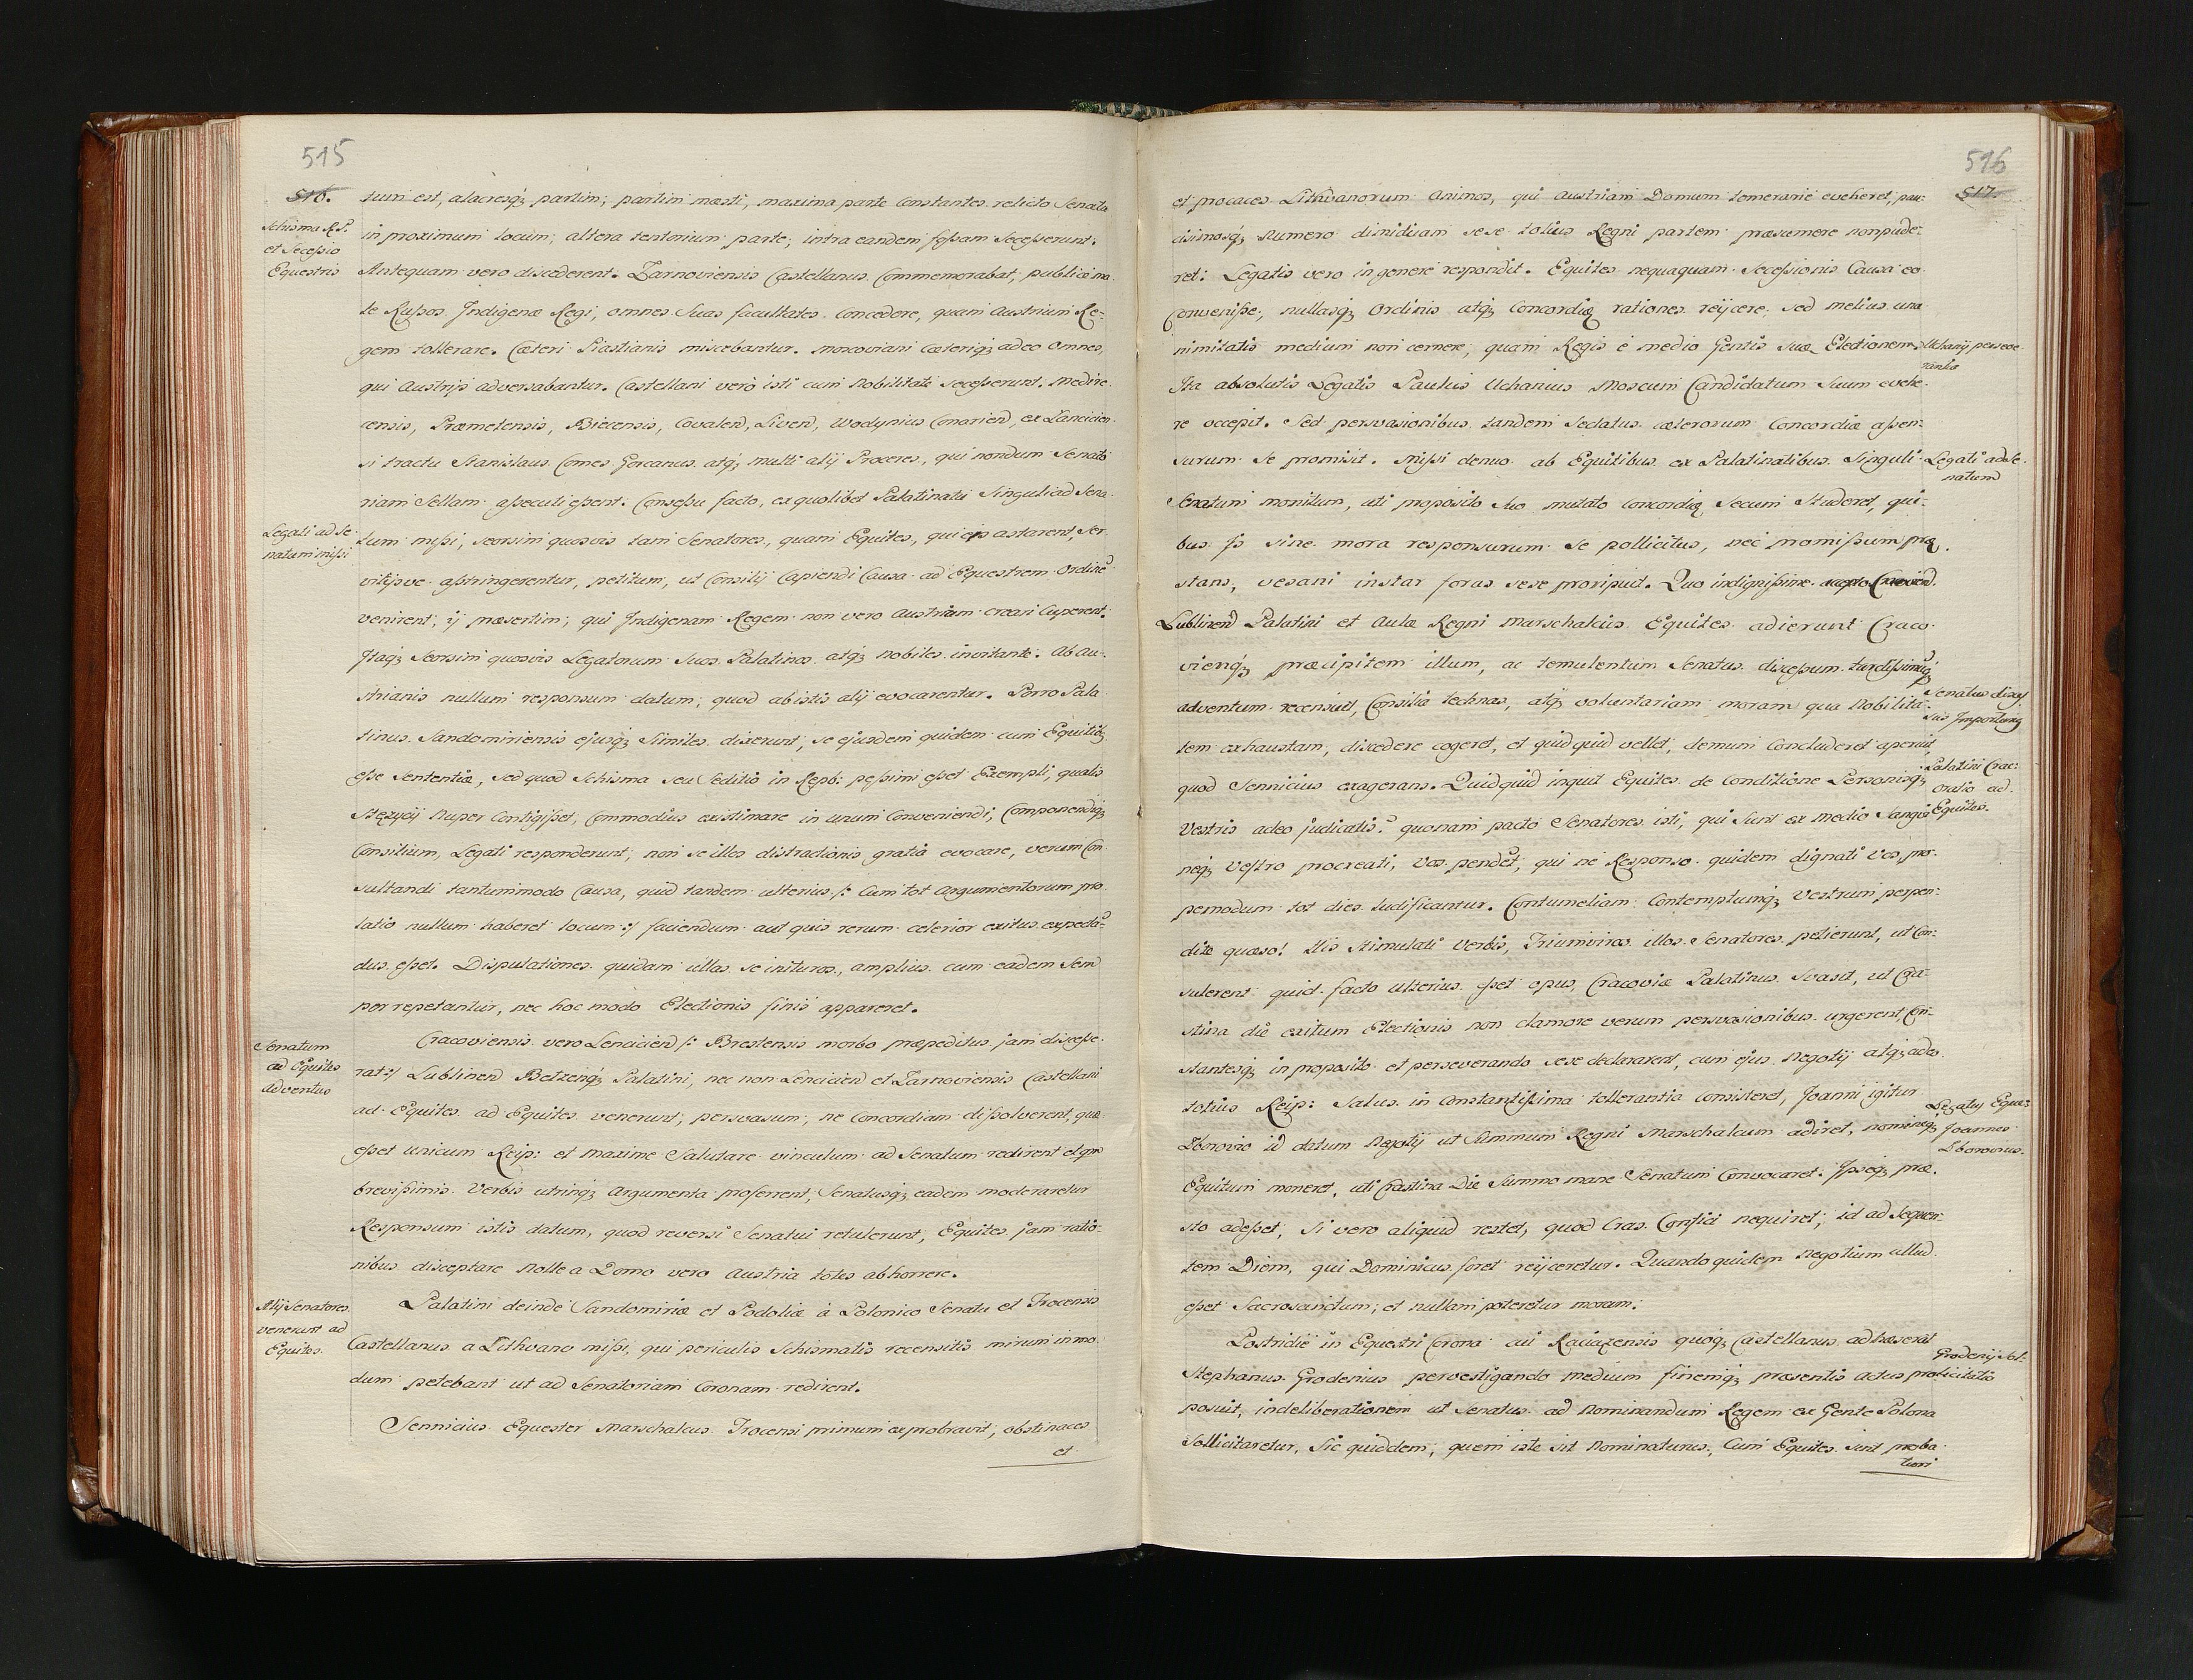 515
516.
tum est, alacresq; partim, partim mæsti, maxima parte Constantes relicto Senatu
Schisma R.P.
et Secessio
Equestris
in proximum locum, altera tentorium parte, intra eandem fossam Secesserunt.
Antequam vero discederent. Zarnoviensis Castellanus Commemorabat, publicæ ma
te Russos Indigenæ Regi, omnes Suas facultates Concedere, quam Austrium Re-
gem tollerare. Cæteri Piastianis miscebantur. Moscoviani Cæteriq; adeo omnes,
qui Austrijs adversabantur. Castellani vero isti cum Nobilitate secesserunt, Medire
censis, Præmetensis, Biecensis, Covalen, Liven, Wodynius Conarien, ex Lancicien
si tractu Stanislaus Comes Gorcanus atq; multi alij Proceres, qui nondum Senato
riam Sellam assecuti essent. Consessu facto, ex quolibet Palatinatu Singuli ad Sena-
Legati ad Se
natum missi
tum missi, seorsim quosvis tam Senatores, quam Equites, qui eis astarent, Ser
vitijsve abstringerentur, petitum, ut Consilij Capiendi Causa ad Equestrem Ordine
venirent, ij præsertim, qui Indigenam Regem non vero Austrium creari Cuperent.
Itaq; Seorsim quosvis Legatorum Suos Palatinos atq; Nobiles invitante. Ab Au-
strianis nullum responsum datum, quod ab istis alij evocarentur. Porro Pala
tinus Sandomiriensis ejusq; Similes dixerunt, se ejusdem quidem cum Equitib;
esse Sententiæ, sed quod Schisma seu Seditio in Repb: pessimi esset Exempli, qualis
Stezycij Nuper Contigisset, Commodius existimare in unum Conveniendi, Componendiq;
Consilium, Legati responderunt, non se illos distractionis gratia evocare, verum Con-
sultandi tantummodo Causa, quid tandem ulterius /: Cum tot Argumentorum pro
latio nullum haberet locum :/ faciendum aut quis rerum celerior exitus expectan
dus esset. Disputationes quidam ullas se inituros, amplius cum eadem Sem
per repetantur, nec hoc modo Electionis finis appareret.
Senatum
ad Equites
Adventus
Cracoviensis vero Lencicien /: Brestensis morbo præpeditus jam discesse-
rat :/ Lublinen Belzenq; Palatini, nec non Lencicien et Zarnoviensis Castellani
ad Equites ad Equites venerunt, persvasum, ne Concordiam dissolverent, quæ
esset unicum Reip: et maxime Salutare vinculum ad Senatum redirent et qm
brevissimis Verbis utrinq; Argumenta proferrent, Senatusq; eadem moderaretur
Responsum istis datum, quod reversi Senatui retulerunt, Equites jam ratio-
nibus disceptare Nolle a Domo vero Austria totos abhorrere.
Alij Senatores
venerunt ad
Equites.
Palatini deinde Sandomiriæ et Podoliæ à Polonico Senatu et Trocensis
Castellanus a Lithvano missi, qui periculis Schismatis recensitis mirum inmo
dum petebant ut ad Senatoriam Coronam redirent.
Sennicius Equester Marschalcus Trocensi primum exprobravit, obstinaces
et
516
517.
et procaces Lithvanorum Animos, qui Austriam Domum temerarie eveheret, pau-
cisimosq; Numero dimidiam sese totius Regni partem præsumere non pude-
ret: Legatis vero in genere respondit. Equites nequaquam Secessionis Causa eo
Convenisse, nullasq; Ordinis atq; Concordiæ rationes reijcere, sed melius una-
nimitatis medium non cernere, quam Regis è medio Gentis Suæ Electionem.
Uchanij perseve
rantia
Ita absolutis Legatis Paulus Uchanius Moscum Candidatum Suum evehe-
re occepit. Sed persvasionibus tandem Sedatus cæterorum Concordiæ assen-
surum Se promisit. Missi denuo ab Equitibus ex Palatinatibus Singuli
Legati ad Se-
natum
Senatum monitum, uti proposito Suo mutato Concordiæ Secum Studeret, qui-
bus Is sine mora responsurum Se pollicitus, nec promissum præ
stans, vesani instar foras sese proripuit. Quo indignissime accepto Cracovien.
Lublinen Palatini et Aulæ Regni Marschalcus Equites adierunt Craco-
vienq; præcipitem illum, ac temulentum Senatus discessum tardissimuq;
adventum recensuit, Consilia technas, atq; voluntariam moram qua Nobilita-
Senatus disces
sus Importung
tem exhaustam, discedere cogeret, et quidquid vellet, demum Concluderet aperuit
Palatini Crac:
oratio ad
Equites.
quod Sennicius exagerans. Quidquid inquit Equites de Conditione Personisq;
Vestris adeo judicatis? quonam pacto Senatores isti, qui Sunt ex medio Sangvi
neq; Vestro procreati, Vos pendet, qui ne Responso quidem dignati Vos pro-
pemodum tot dies ludificantur. Contumeliam Contemptumq; Vestrum perpen-
dite quæso! His Stimulati Verbis, Triumviros illos Senatores petierunt, ut Con-
sulerent quid facto ulterius esset opus, Cracoviæ Palatinus Svasit, ut Cra-
stina die exitum Electionis non clamore verum persvasionibus urgerent, Con-
stantesq; in proposito et perseverando sese declararent, cum ejus Negotij atq; adeo
totius Reip: Salus in Constantissima tollerantia Consisteret, Joanni igitur
Legatus Eque:
Joannes
Zborovius.
Zborovio id datum Negotij ut Summum Regni Marschalcum adiret, nomineq;
Equitum moneret, uti Crastina Die Summo mane Senatum Convocaret. Ipseq; præ-
sto adesset, Si vero aliquid restet, quod Cras Confici nequiret, id ad Sequen-
tem Diem, qui Dominicus foret reijceretur. Quandoquidem Negotium illud
esset Sacrosanctum, et nullam poteretur moram.
Postridie in Equestri Corona cui Raciazensis quoq; Castellanus adhæserat
Grodenij Sol-
licitatio
Stephanus Grodenius pervestigando medium finemq; præsentis actus pro
posuit, in deliberationem ut Senatus ad Nominandum Regem ex Gente Polona
Sollicitaretur, Sic quiddem, quem iste sit Nominaturus, Cum Equites sint proba-
turi